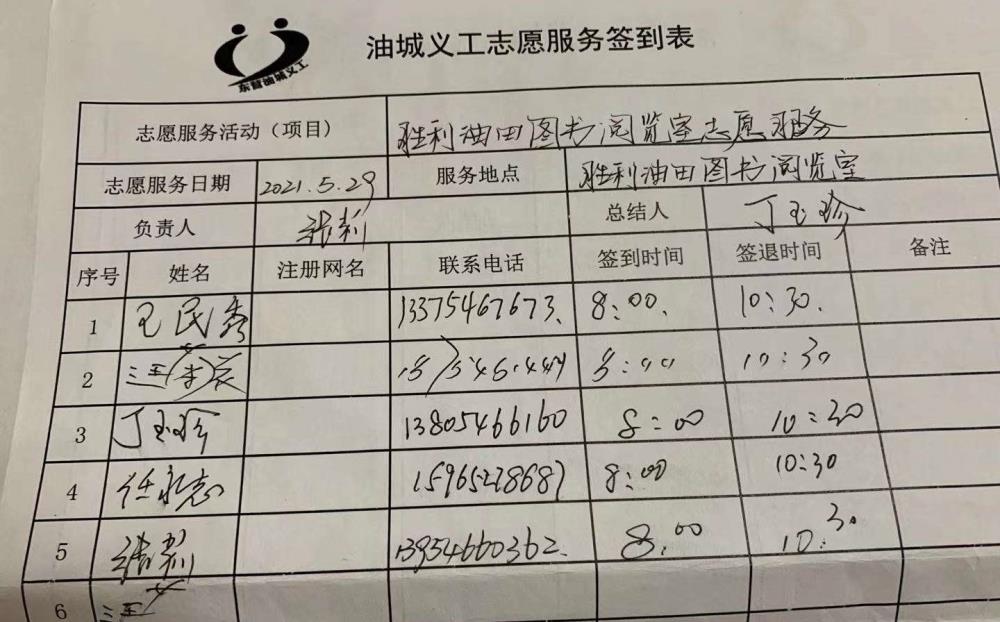 东营油城义工
油城义工志愿服务签到表
志愿服务活动（项目） 胜利油田图书阅览室志愿服务
志愿服务日期 2021.5.29 服务地点 胜利油田图书阅览室
负责人 张莉 总结人 丁玉珍
序号 姓名 注册网名 联系电话 签到时间 签退时间 备注
1 王民秀 13375467673. 8:00. 10:30.
2 8:00 10:30
3 丁玉珍 13805466160 8:00 10:30
4 任永志 8:00 10:30
5 张莉 13954660362. 8:00 10:30
6